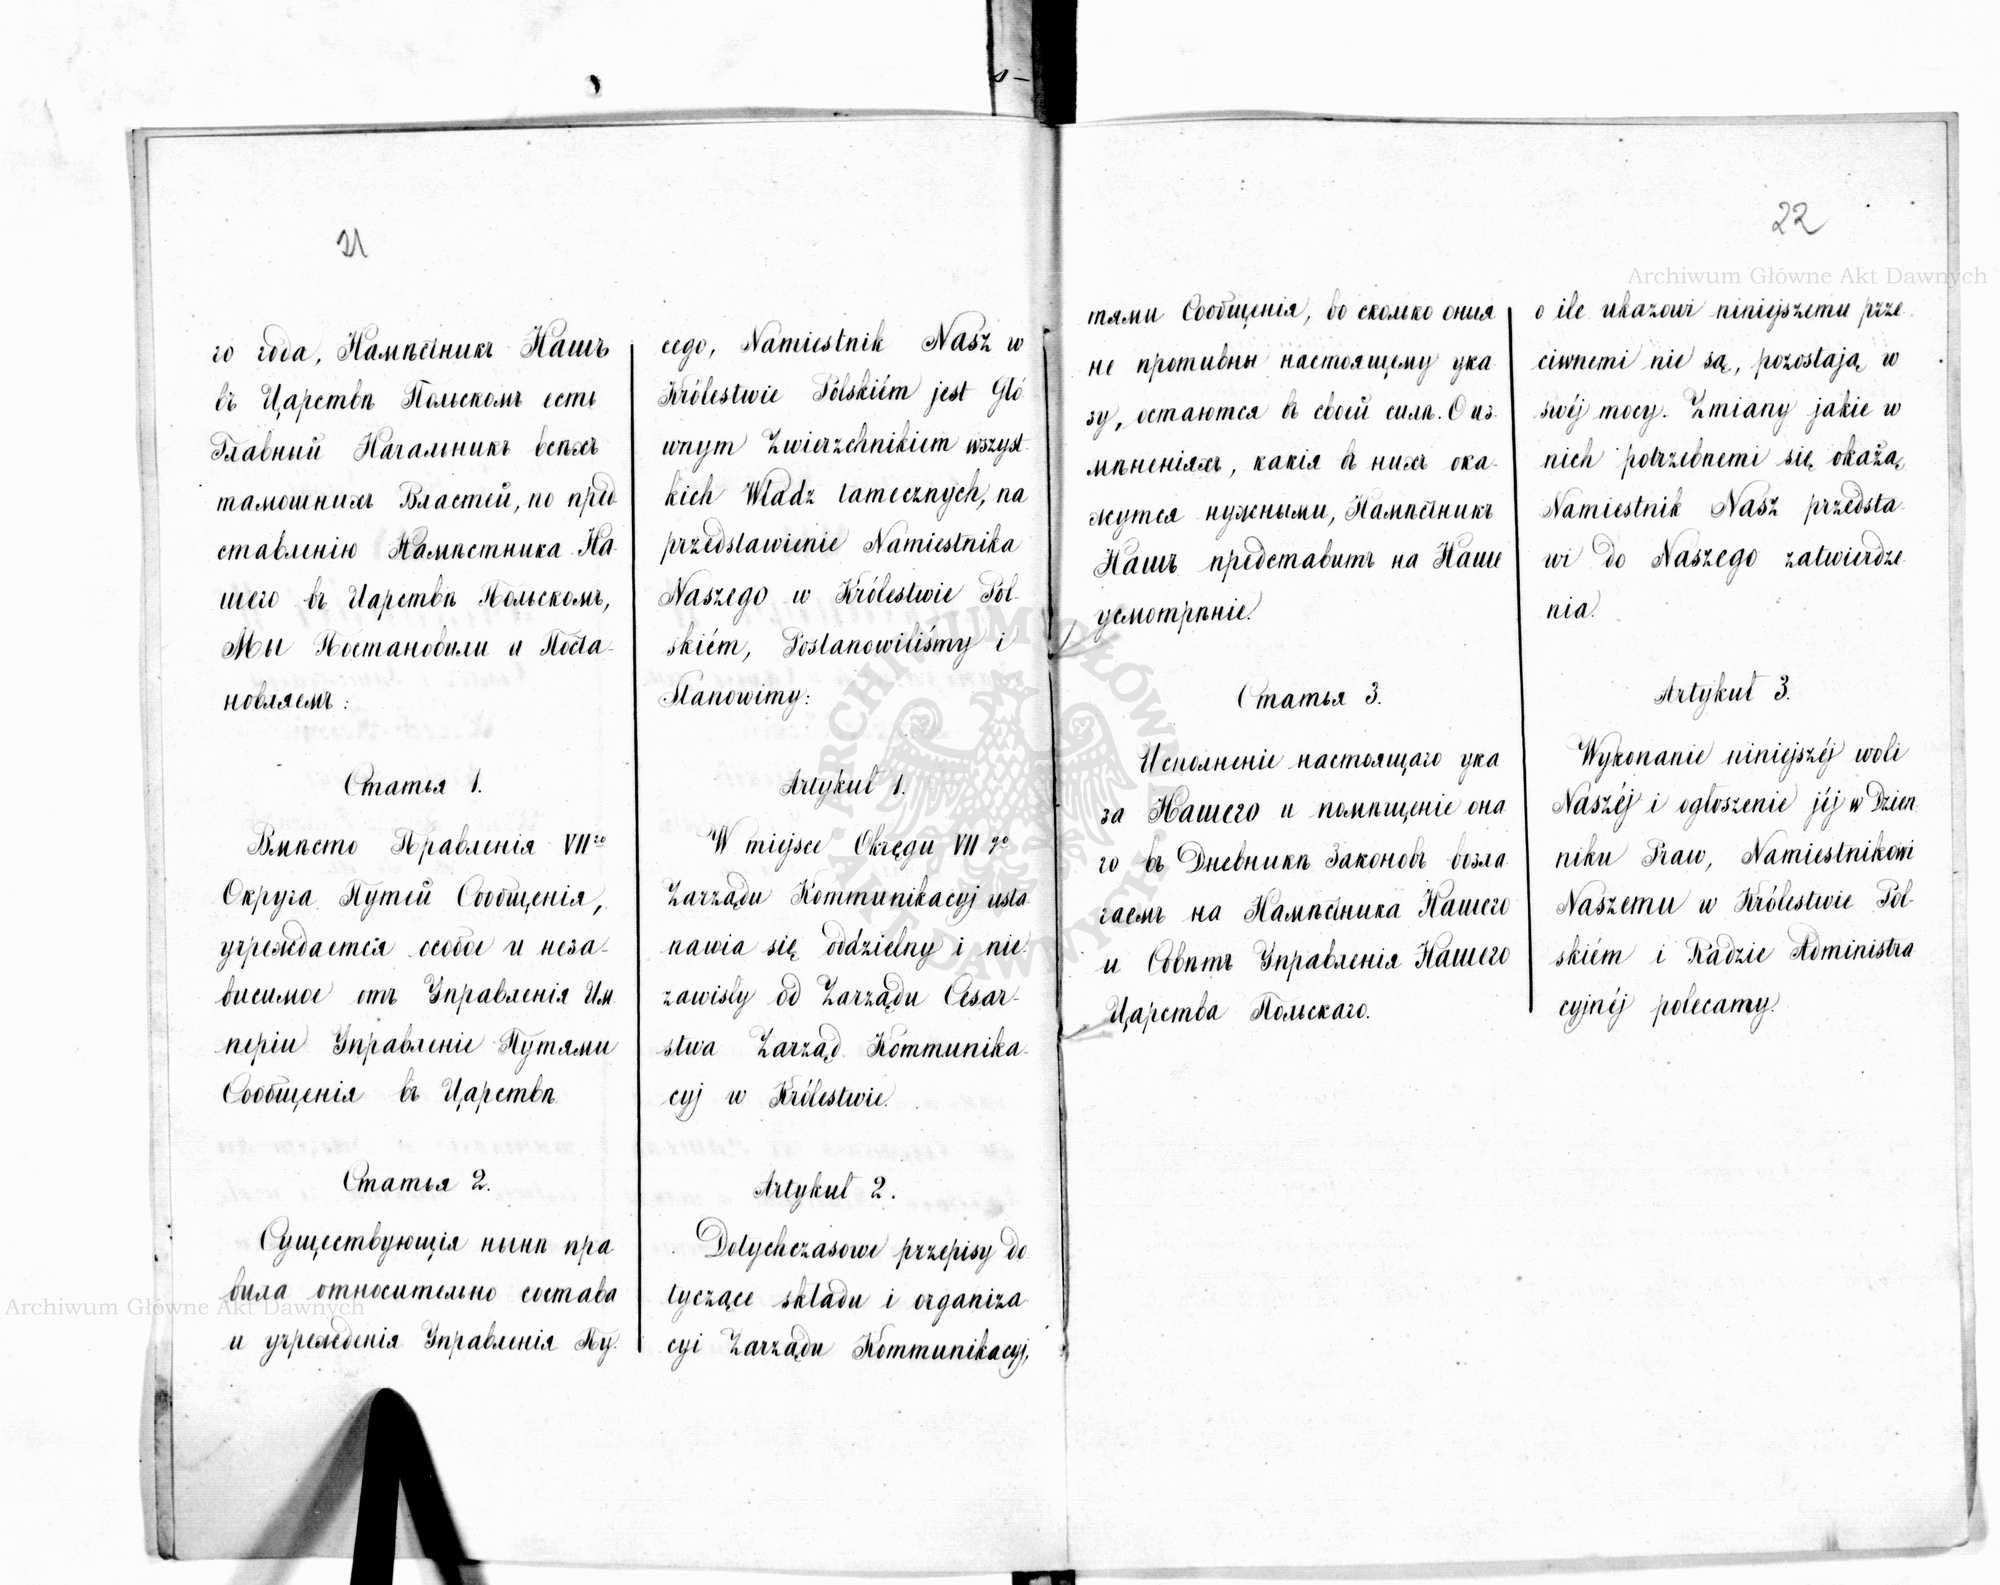 21
го года, Намѣстникъ Нашъ
въ Царствѣ Польскомъ есть
Главный Начальникъ всѣхъ
тамошнихъ Властей, по пред
ставленію Намѣстника На-
шего въ Царствѣ Польскомъ,
Мы Постановили и Поста-
новляемъ:
Статья 1.
Вмѣсто Правленія VIIго
Округа Путей Сообщенія,
учреждается особое и неза-
висимое отъ Управленія Им
періи Управленіе Путями
Сообщенія въ Царствѣ
Статья 2.
Существующія нынѣ пра
вила относительно состава
и учрежденія Управленія Пу.
cego, Namiestnik Nasz w
Królestwie Polskiém jest Głó
wnym Zwierzchnikiem wszyst-
kich Władz tamecznych, na
przedstawienie Namiestnika
Naszego w Królestwie Pol-
skiém, Postanowiliśmy i
Stanowimy:
Artykuł 1.
W miejsce Okręgu VII go
Zarządu Kommunikacyj usta
nawia się oddzielny i nie
zawisły od Zarządu Cesar-
stwa Zarząd Kommunika-
cyj w Królestwie.
Artykuł 2.
Dotychczasowe przepisy do
tyczące składu i organiza
cyi Zarządu Kommunikacyj,
22
тями Сообщенія, во сколько оныя
не противны настоящему ука
зу, остаются въ своей силѣ. О из-
мѣненіяхъ, какія въ нихъ ока-
жутся нужными, Намѣстникъ
Нашъ представитъ на Наше
усмотрѣніе.
Статья 3.
Исполненіе настоящаго ука
за Нашего и помѣщеніе она
го въ Дневникѣ Законовъ возла
гаемъ на Намѣстника Нашего
и Совѣтъ Управленія Нашего
Царства Польскаго.
o ile ukazowi niniejszemu prze
ciwnemi nie są, pozostają w
swéj mocy. Zmiany jakie w
nich potrzebnemi się okażą,
Namiestnik Nasz przedsta
wi do Naszego zatwierdze
nia.
Artykuł 3.
Wykonanie niniejszéj woli
Naszéj i ogłoszenie jéj w Dzien
niku Praw, Namiestnikowi
Naszemu w Królestwie Pol-
skiém i Radzie Administra
cyjnéj polecamy.
Archiwum Główne Akt Dawnych
Archiwum Główne Akt Dawnych
ARCHIWUM GŁÓWNE AKT DAWNYCH